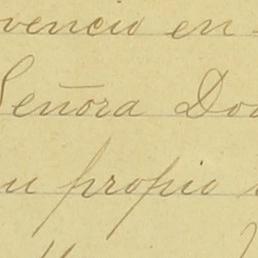 vencio en
Señora Do
u propio